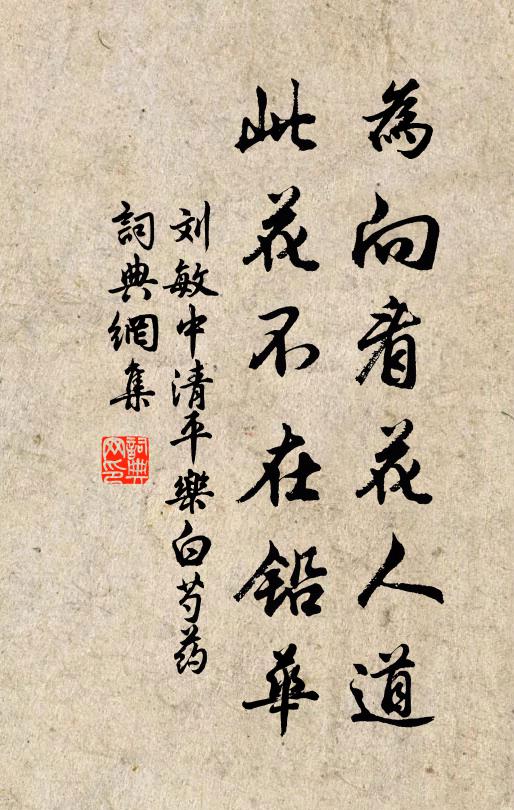 為向看花人道
此花不在铅華
刘敏中清平樂白芍药
詞典網集
詞典網印